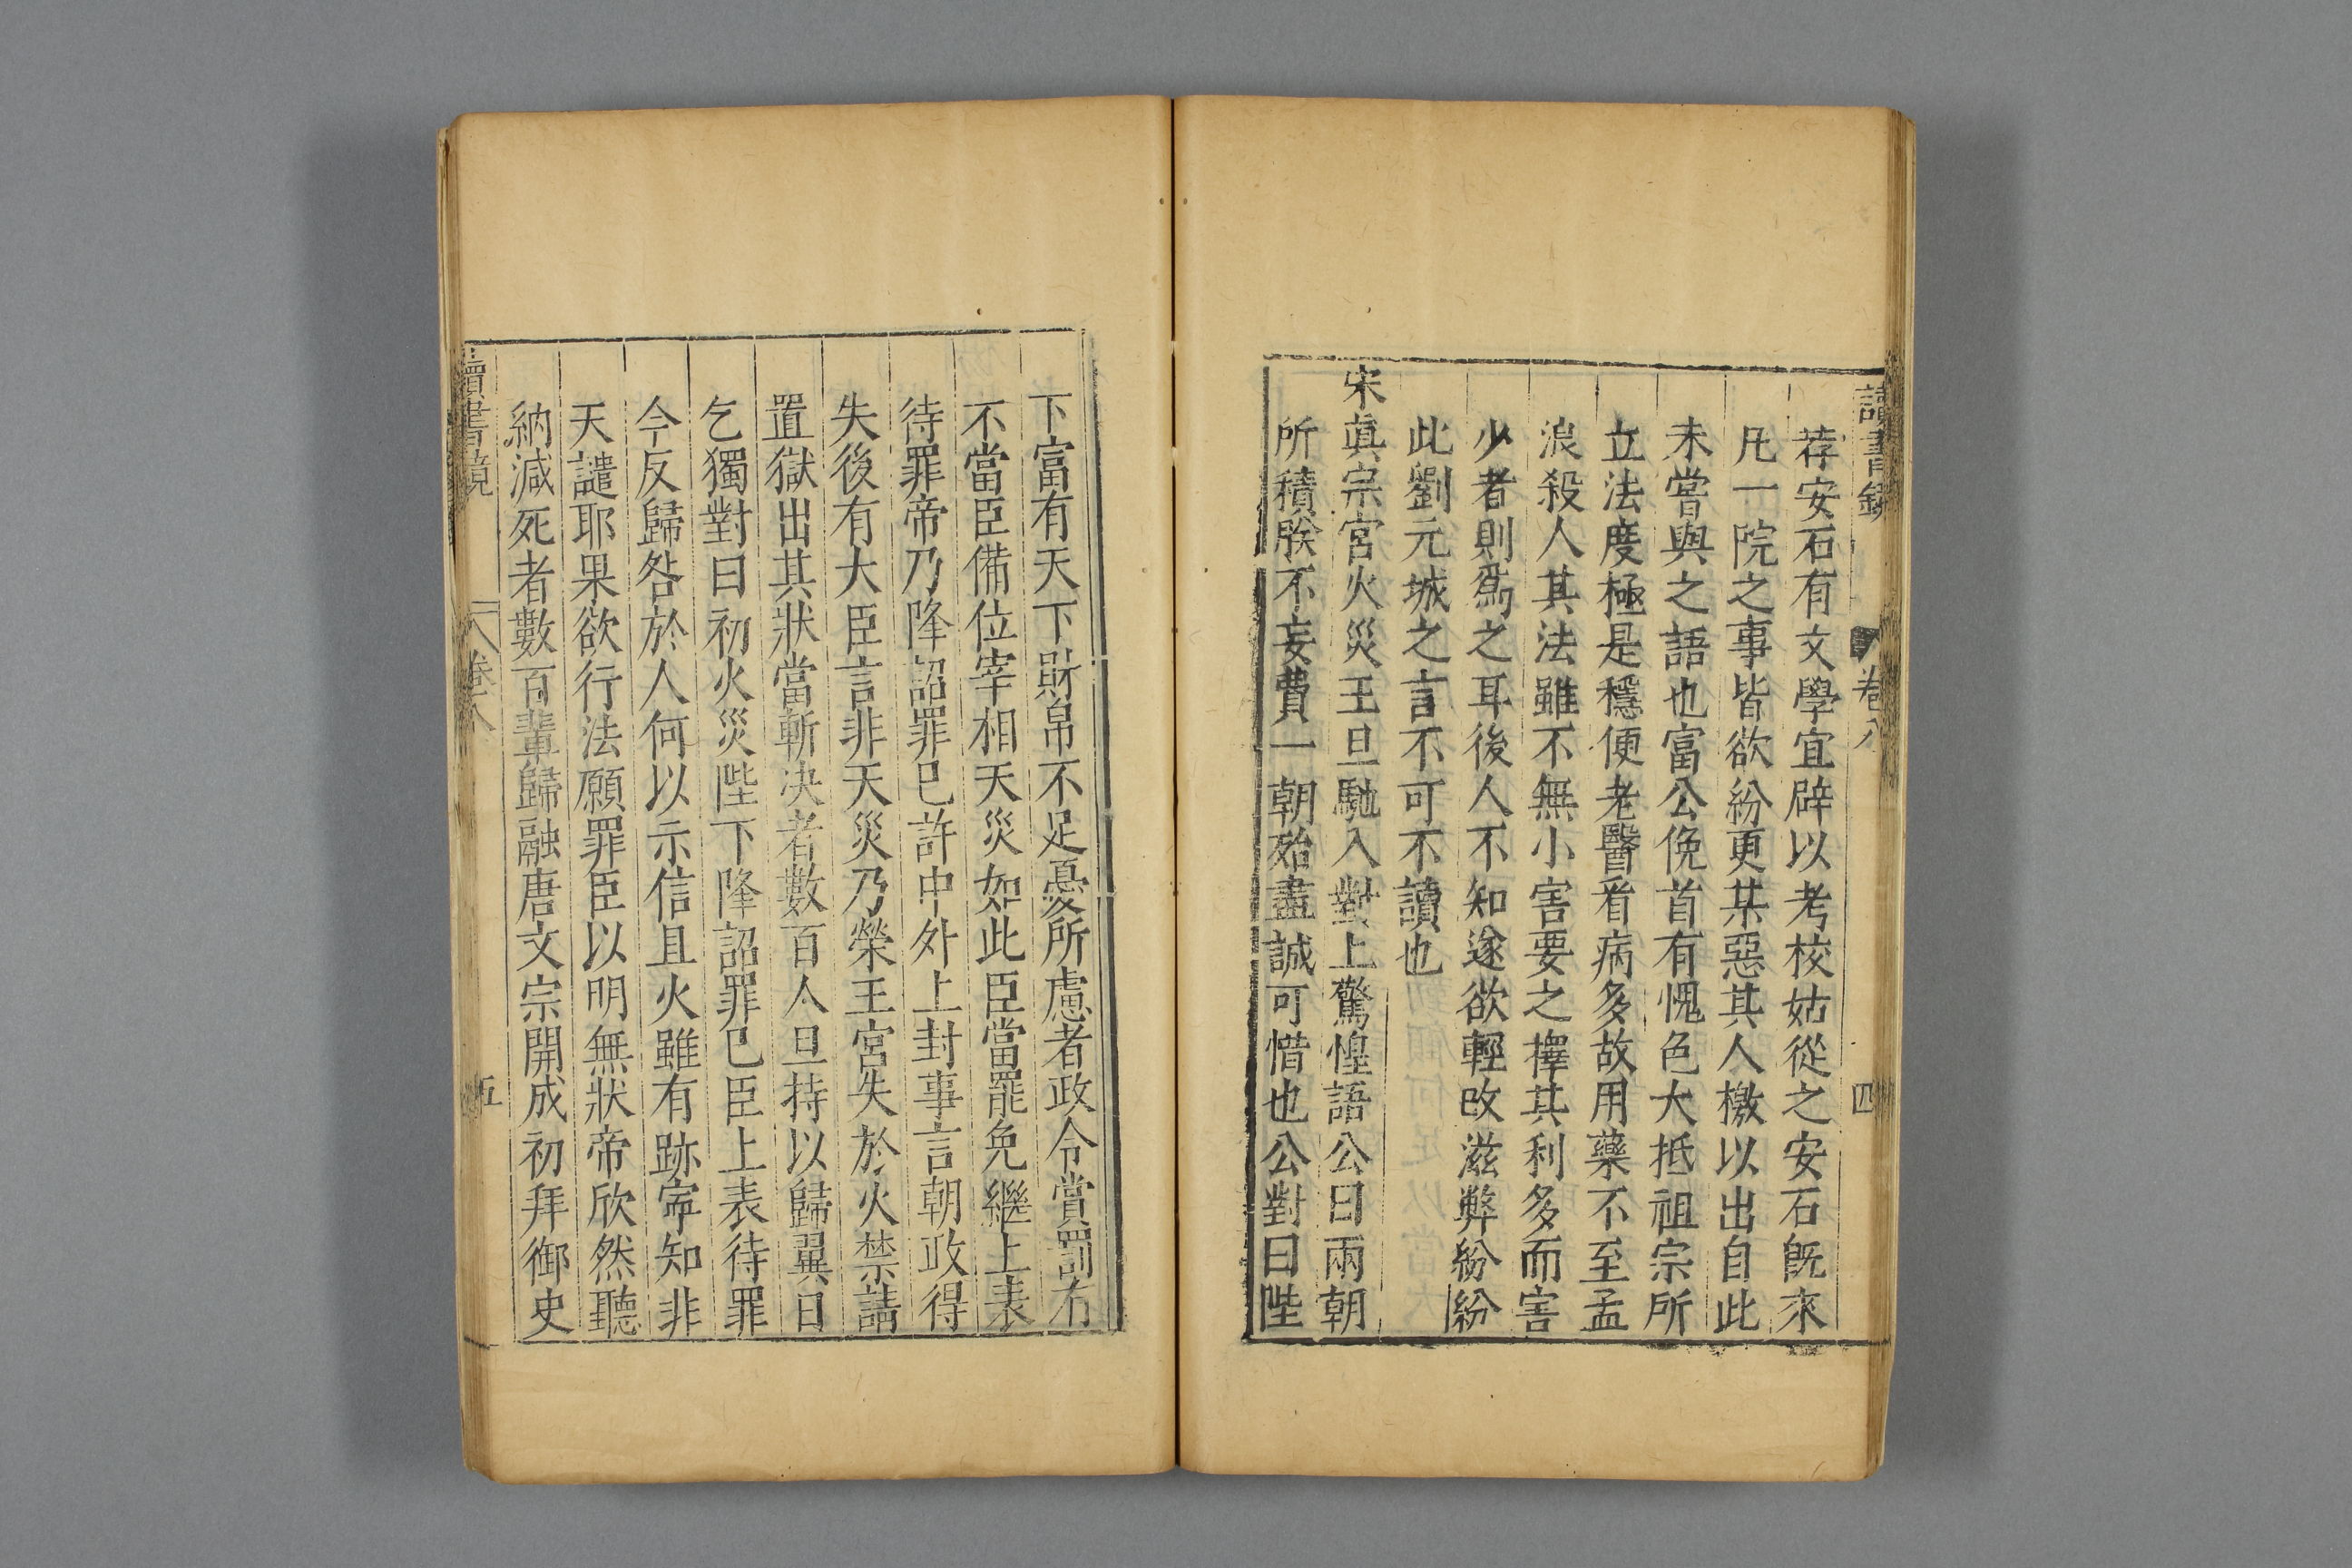 讀書鏡 卷八 四
荐安石有文學宜辟以考校姑從之安石旣來
凡一院之事皆欲紛更某惡其人檄以出自此
未嘗與之語也富公俛首有愧色大抵祖宗所
立法度極是穩便老醫看病多故用藥不至孟
浪殺人其法雖不無小害要之擇其利多而害
少者則爲之耳後人不知遂欲輕改滋弊紛紛
此劉元城之言不可不讀也
宋眞宗宮火災王旦馳入對上驚惶語公曰兩朝
所積朕不妄費一朝殆盡誠可惜也公對曰陛
下富有天下財帛不足憂所慮者政令賞罰有
不當臣備位宰相天災如此臣當罷免繼上表
待罪帝乃降詔罪己許中外上封事言朝政得
失後有大臣言非天災乃榮王宮失於火禁請
置獄出其狀當斬决者數百人旦持以歸翼日
乞獨對曰初火災陛下降詔罪已臣上表待罪
今反歸咎於人何以示信且火雖有跡寕知非
天譴耶果欲行法願罪臣以明無狀帝欣然聽
納減死者數百輩歸融唐文宗開成初拜御史
讀書鏡 卷八 五